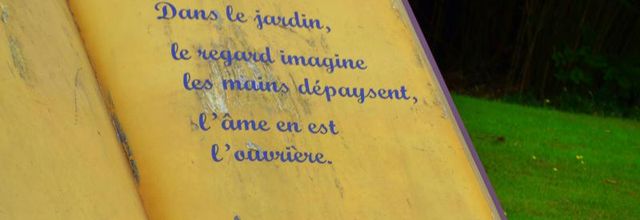 Dans le jardin,
le regard imagine
les mains dépaysent,
l'âme en est
l'ouvrière.